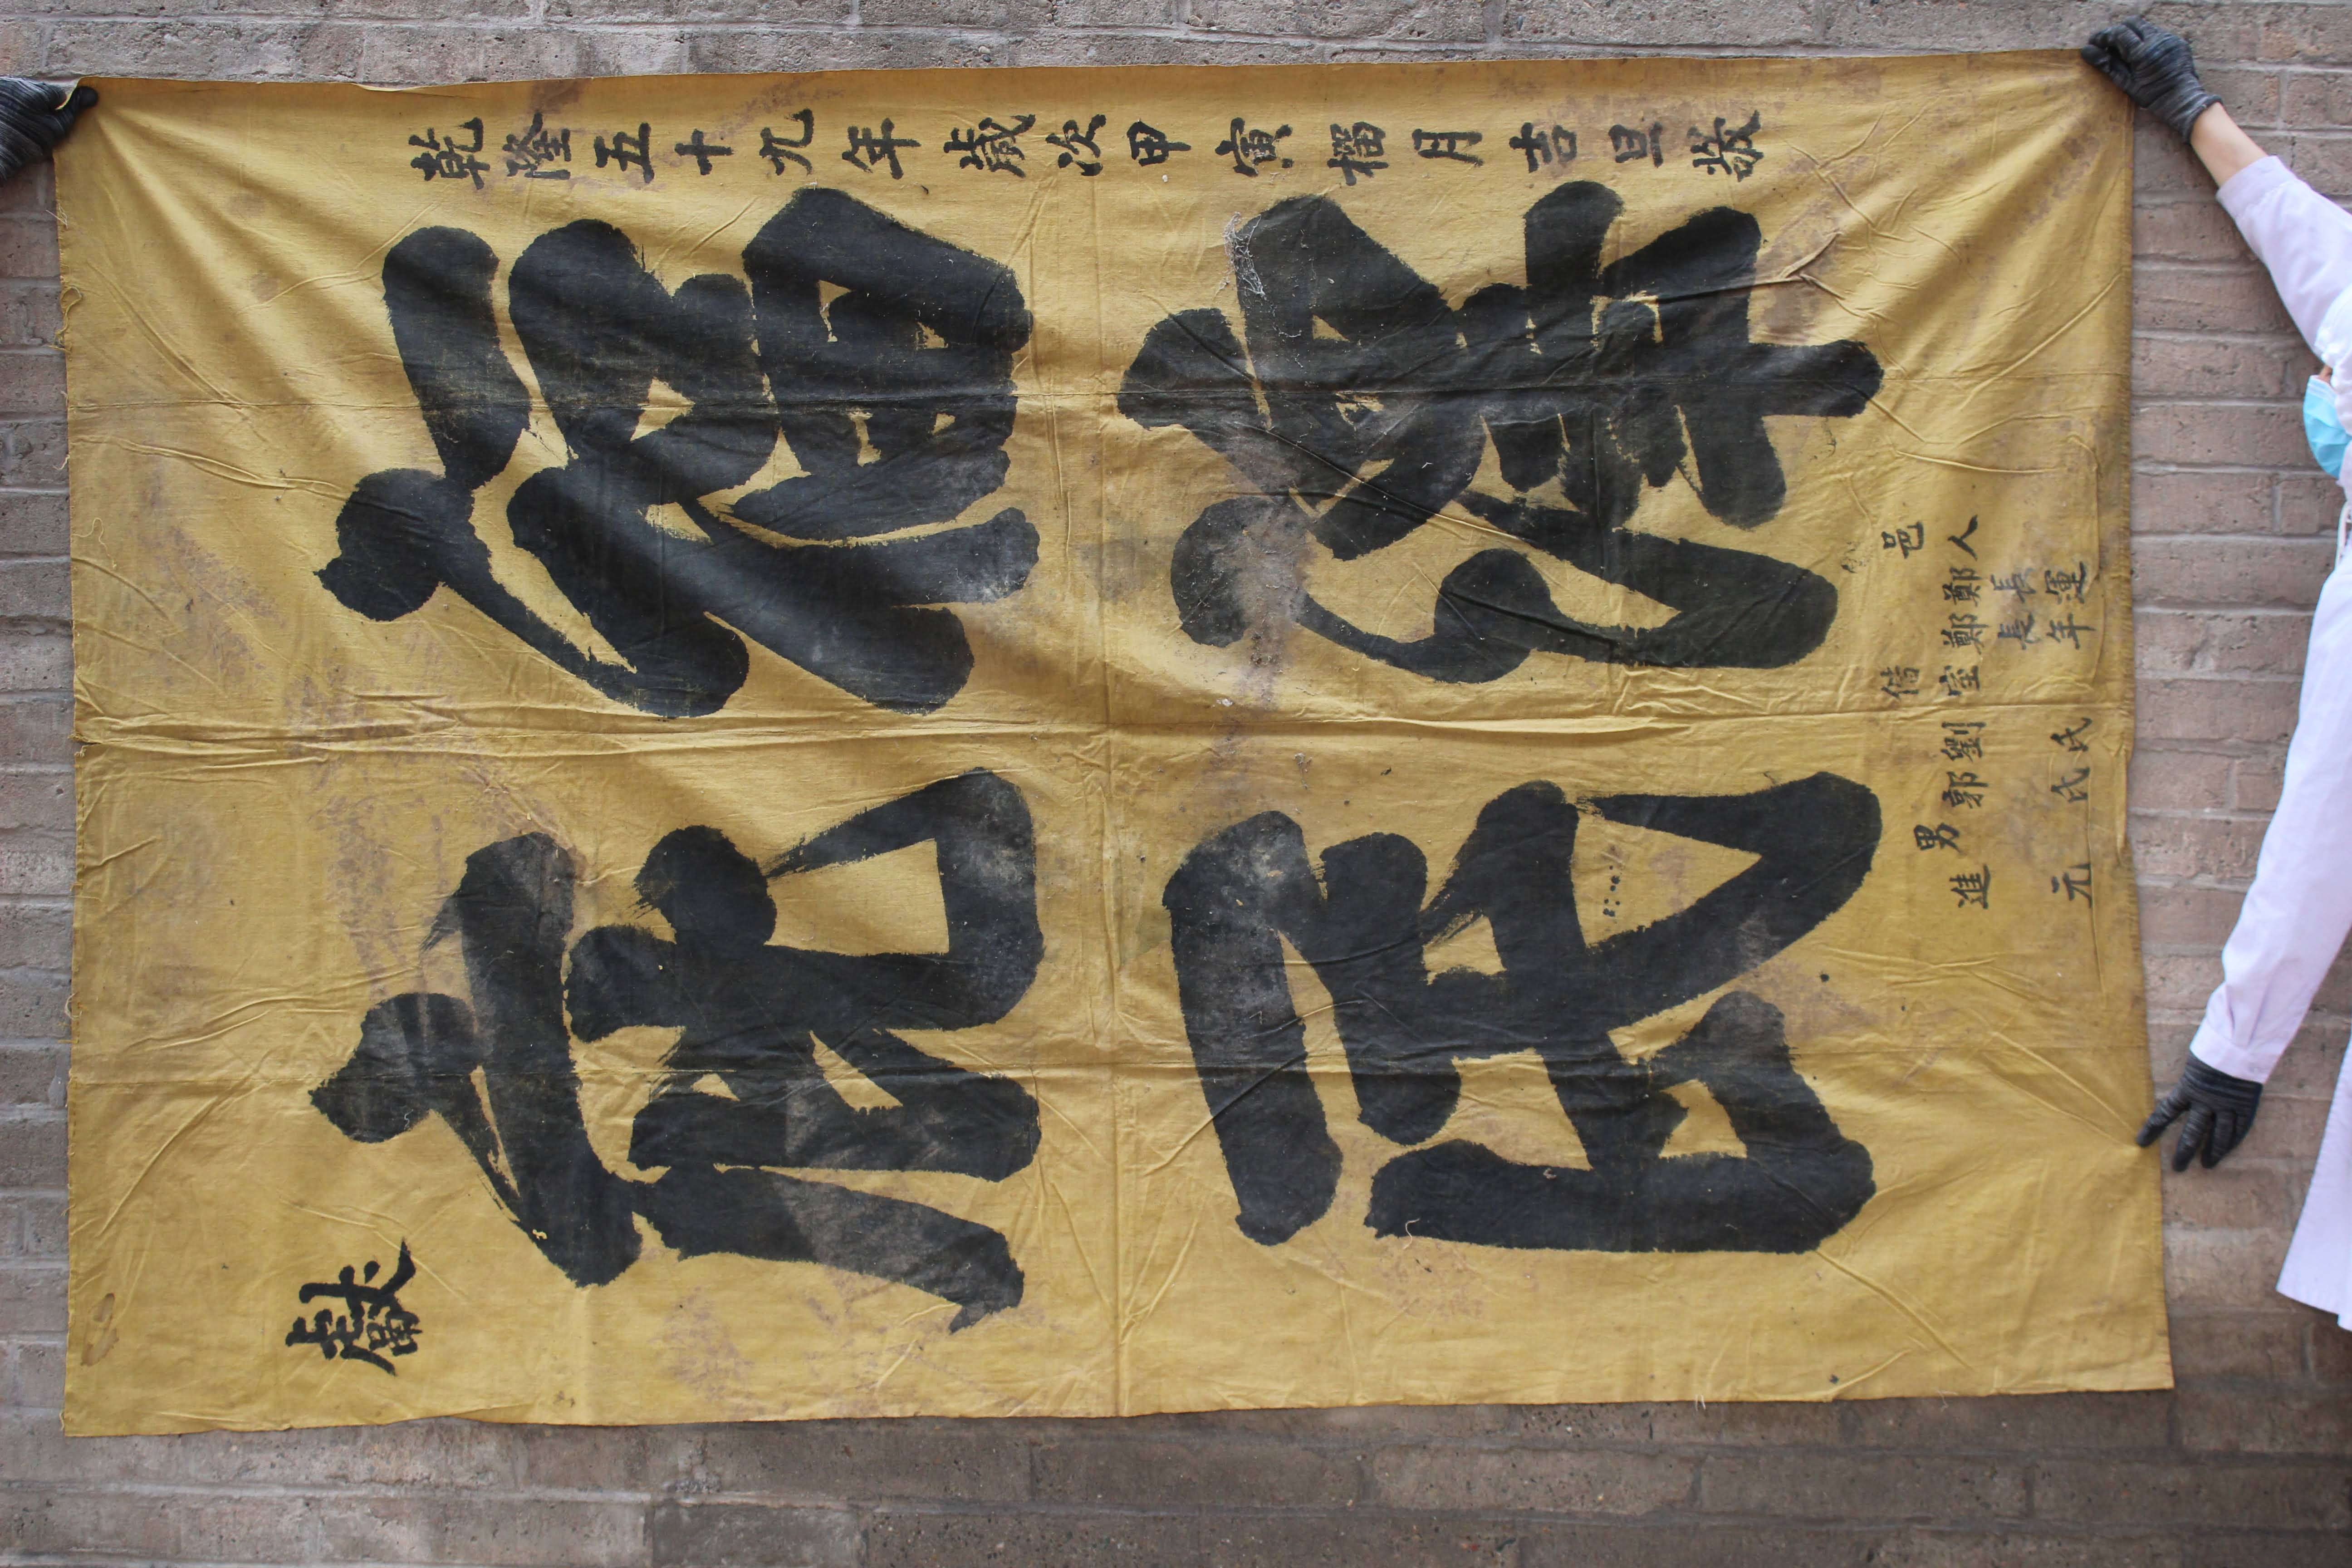 乾隆五十九年歲次甲寅榴月吉旦敬
福
庇民
邑人
鄭長運
鄭長年
偕室
劉氏
郭氏
男
進元
獻